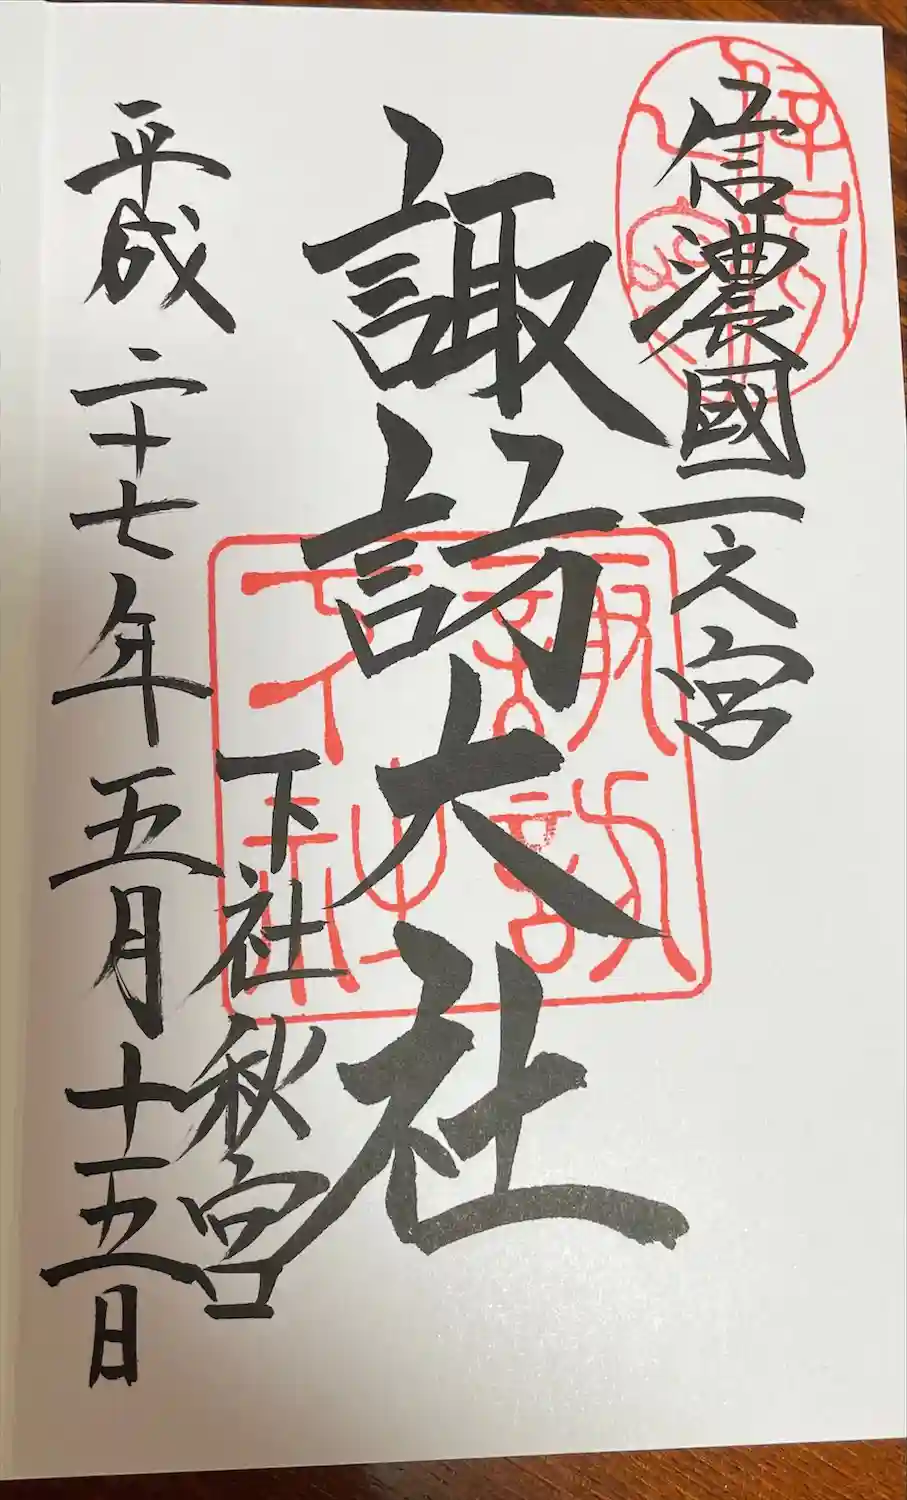 信濃國一之宮
諏訪大社
下社秋宮
平成二十七年五月十五日
諏訪
大社